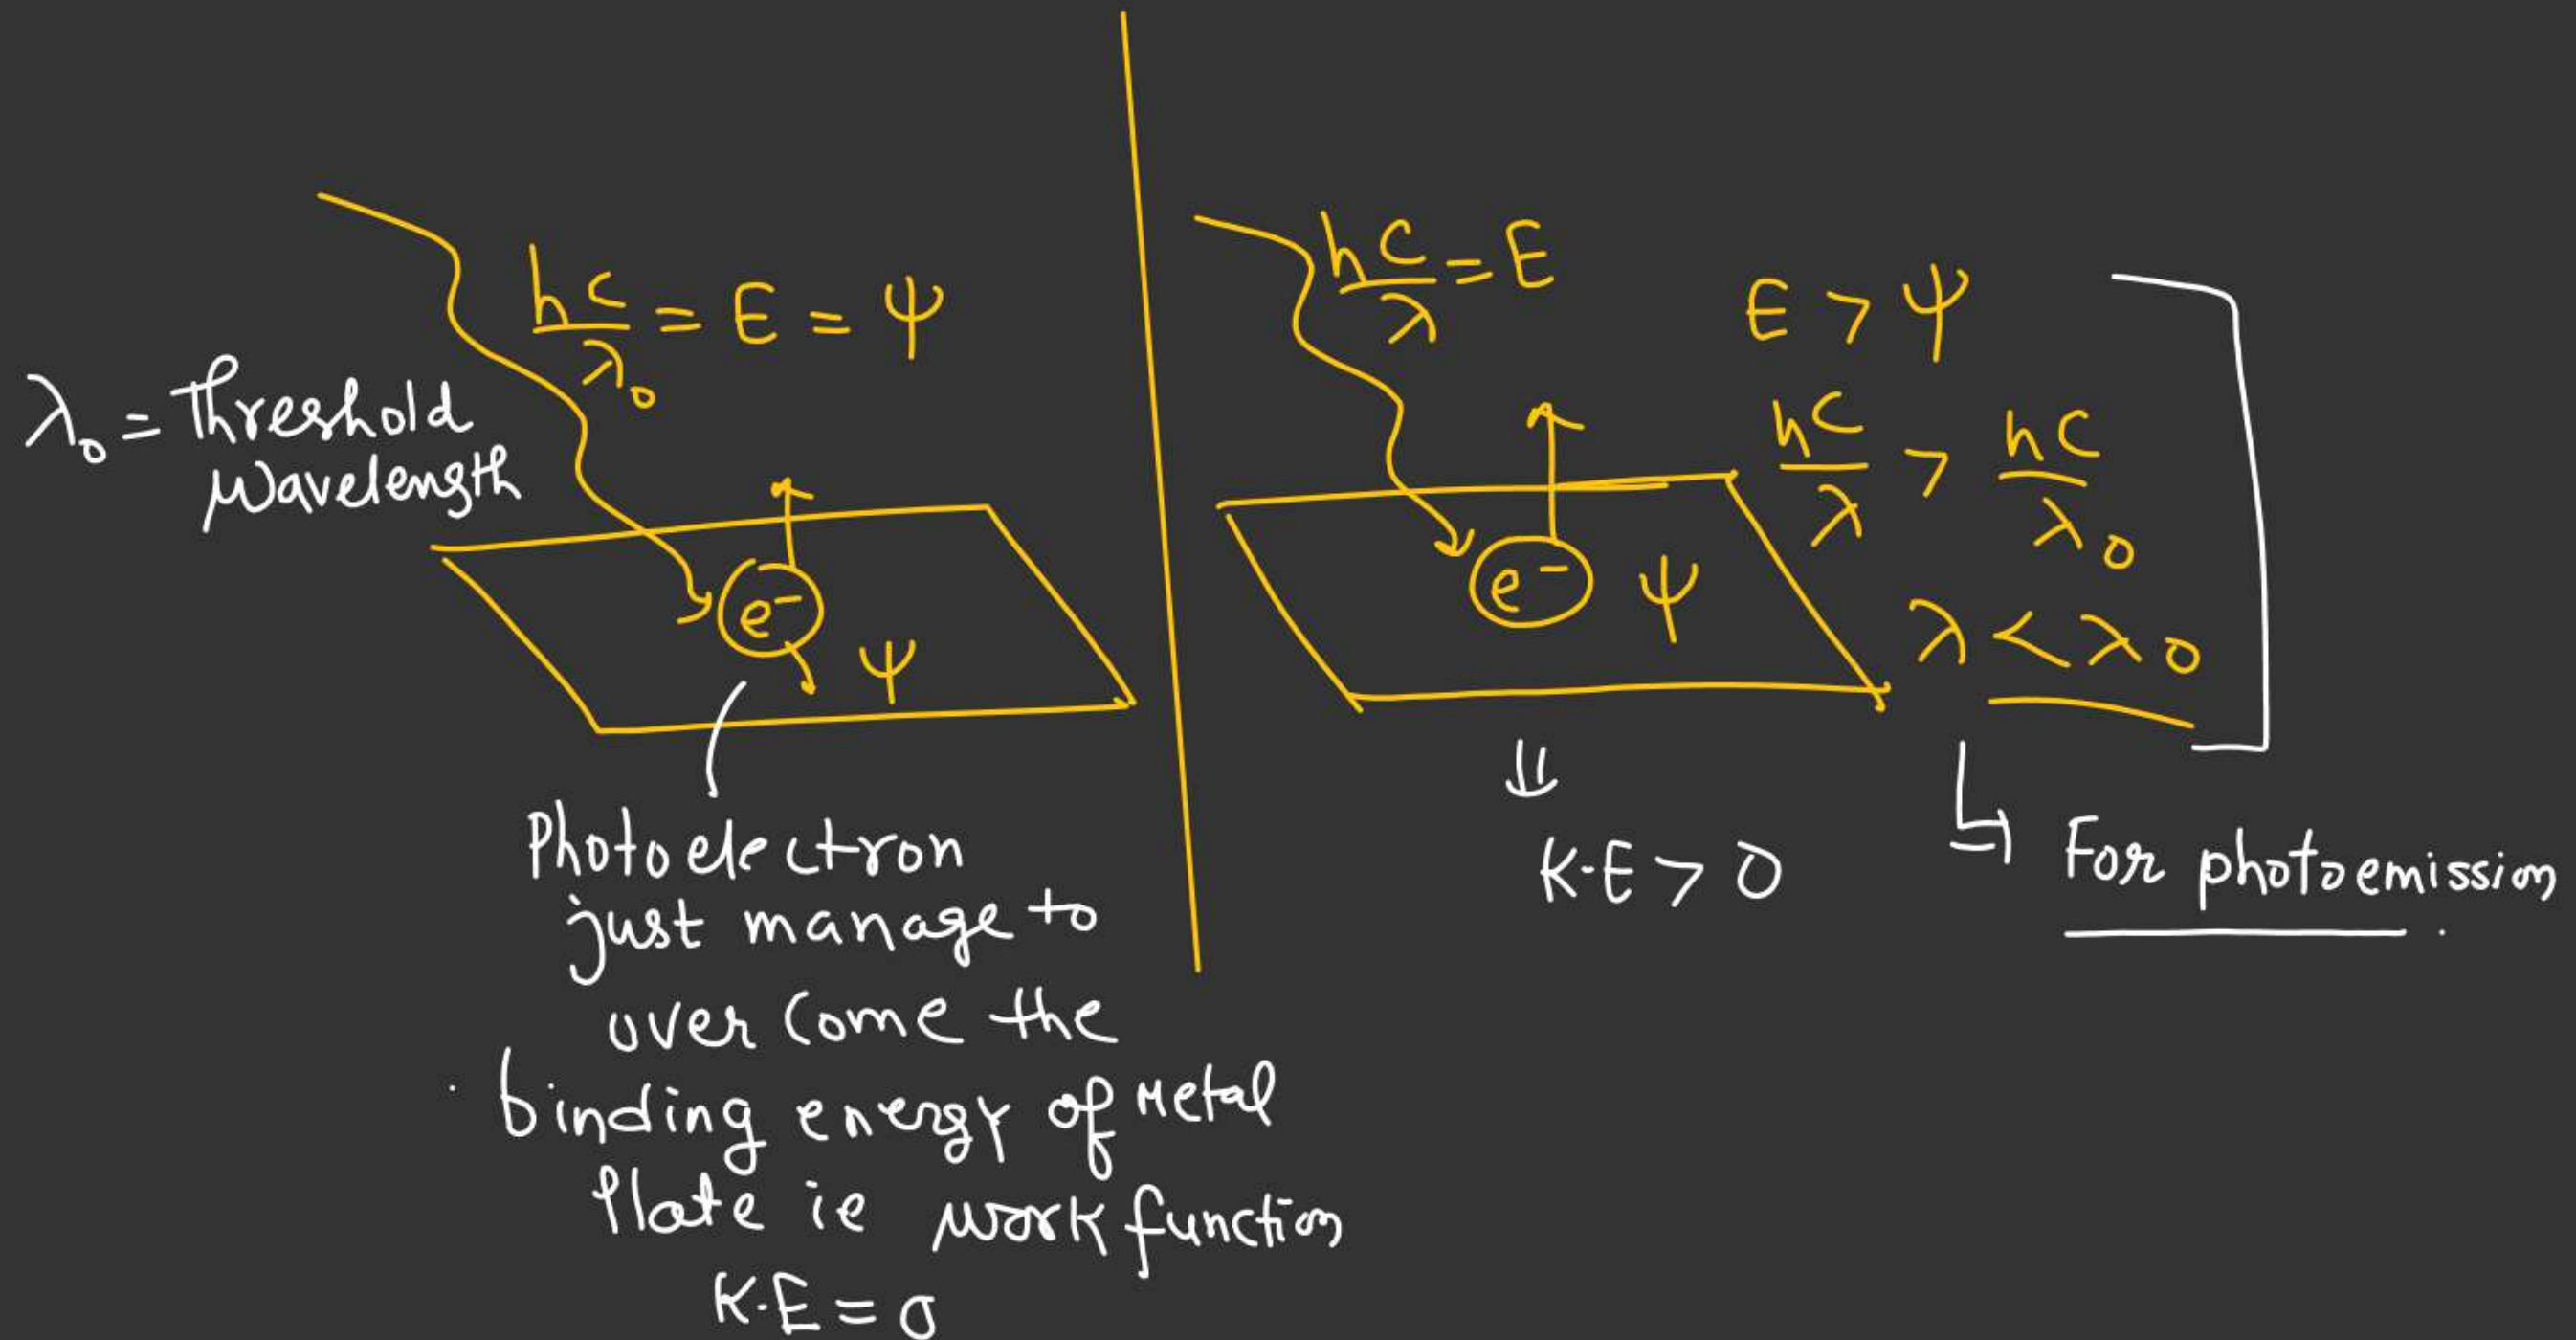 hc/λ₀ = E = ψ
λ₀ = Threshold
Wavelength
e⁻
ψ
Photoelectron
just manage to
over come the
binding energy of Metal
Plate ie work function
K.E = 0
hc/λ = E
E > ψ
hc/λ > hc/λ₀
λ < λ₀
e⁻
ψ
⇓
K.E > 0
↳ For photoemission.